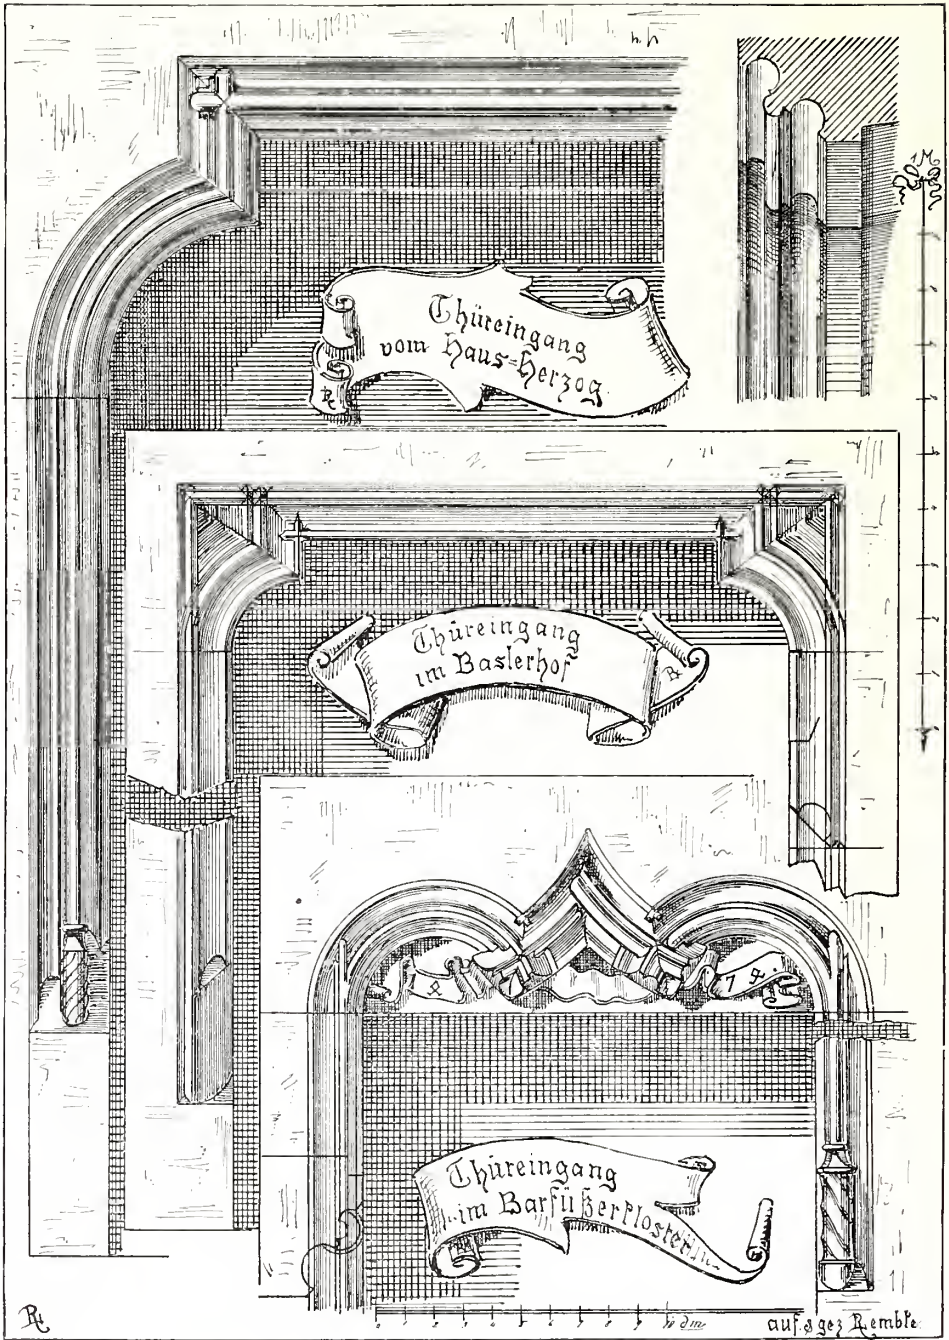 1 M
Thüreingang
vom Haus=Herzog
R
Thüreingang
im Baslerhof
R
1 9.
Thüreingang
im Barfüßerkloster
R
10 dm
auf. & gez R. Lembke